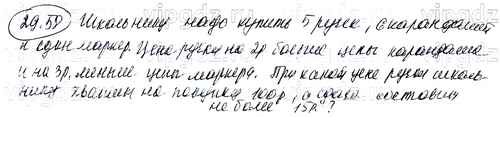 29.58 Школьнику надо купить 5 ручек, 6 карандашей
и один маркер. Цена ручки на 2р больше цены карандаша
и на 3р. меньше цены маркера. При какой цене ручки школь-
нику хватит на покупку 100р, а сдача составит
не более 15р?